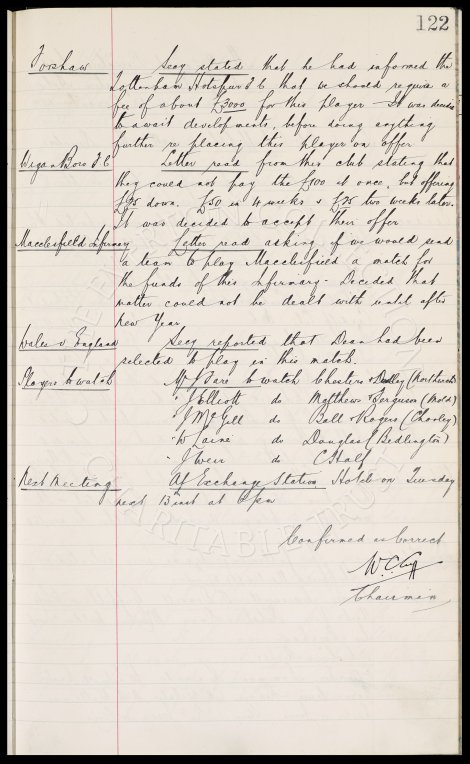 122
Forshaw Secy stated that he had informed the
Tottenham Hotspur F C that we should require a
fee of about £3000 for this player - It was decided
to await developments, before doing anything
further re placing this player on offer
Wigan Boro F C Letter read from this club stating that
they could not pay the £100 at once, but offering
£25 down. £50 in 4 weeks & £25 two weeks later.
It was decided to accept their offer
Macclesfield Infirmary Letter read asking if we would send
a team to play Macclesfield a match for
the funds of this Infirmary - Decided that
matter could not be dealt with until after
New Year.
Wales v. England Secy reported that Dean had been
selected to play in this match.
Players to watch Mr J Bare to watch Chesters & Dudley (Northwich)
" J Elliott do Matthew & Ferguson (Mold)
" J McGill do Ball & Rogers (Chorley)
" W Laine do Douglas (Bedlington)
" J Weir do C Half
Next Meeting At Exchange Station Hotel on Tuesday
next 13th inst at 6 pm
Confirmed as Correct
W.C.
Chairman
CHARITABLE TRUST